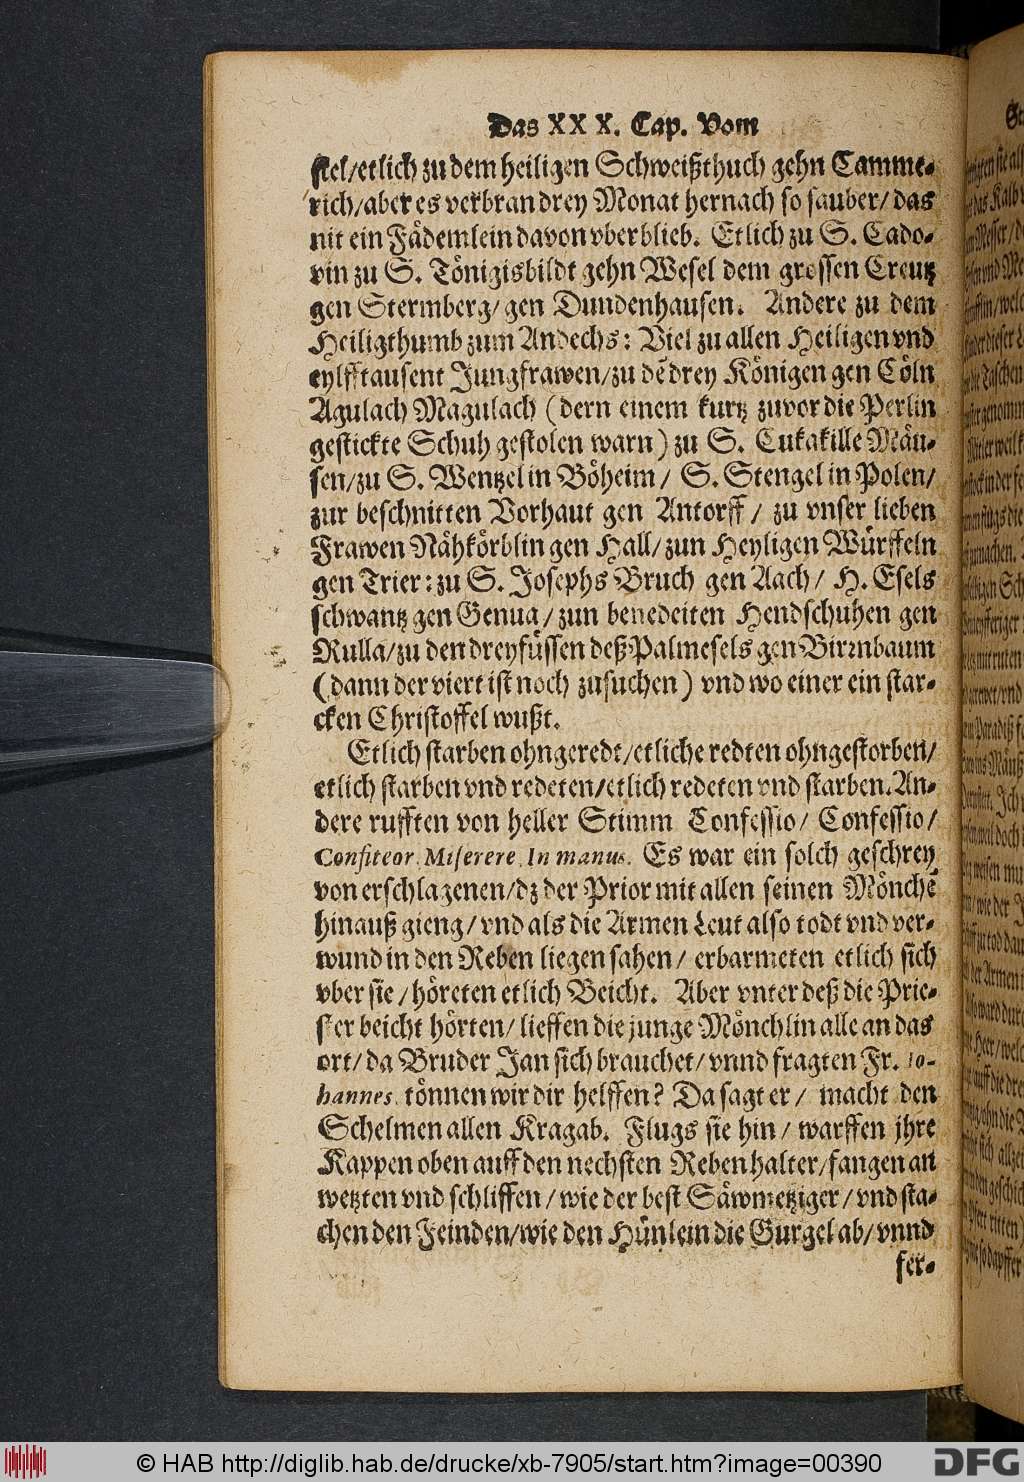 Das XXX. Cap. Vom
stel/etlich zu dem heiligen Schweißthuch gehn Camme-
rich/aber es verbran drey Monat hernach so sauber/ das
nit ein Fädemlein davon vberblieb. Etlich zu S. Cado-
vin zu S. Tönigisbildt gehn Wesel dem grossen Creutz
gen Stermberg/gen Dundenhausen. Andere zu dem
Heiligthumb zum Andechs: Viel zu allen Heiligen vnd
eylfftausent Jungfrawen/zu dē drey Königen gen Cöln
Agulach Magulach (dern einem kurtz zuvor die Perlin
gestickte Schuh gestolen warn) zu S. Cukakille Mäu-
sen/zu S. Wentzel in Böheim / S. Stengel in Polen/
zur beschnitten Vorhaut gen Antorff / zu vnser lieben
Frawen Nähkörblin gen Hall/zun Heyligen Würffeln
gen Trier: zu S. Josephs Bruch gen Aach/ H. Esels
schwantz gen Genua/zun benedeiten Hendschuhen gen
Rulla/zu den dreyfüssen deß Palmesels gen Birrnbaum
(dann der viert ist noch zusuchen) vnd wo einer ein star-
cken Christoffel wußt.
Etlich starben ohngeredt/etliche redten ohngestorben/
etlich starben vnd redeten/etlich redeten vnd starben. An-
dere rufften von heller Stimm Confessio/ Confessio/
Confiteor. Miserere. In manus. Es war ein solch geschrey
von erschlagenen/dz der Prior mit allen seinen Mönchē
hinauß gieng/ vnd als die Armen Leut also todt vnd ver-
wund in den Reben liegen sahen/ erbarmeten etlich sich
vber sie/höreten etlich Beicht. Aber vnter deß die Prie-
ster beicht hörten/lieffen die junge Mönchlin alle an das
ort/da Bruder Jan sich brauchet/vnnd fragten Fr. Io-
hannes. können wir dir helffen? Da sagt er/ macht den
Schelmen allen Kragab. Flugs sie hin/ warffen jhre
Kappen oben auff den nechsten Rebenhalter/fangen an
wetzten vnd schliffen/wie der best Säwmetziger/vnd sta-
chen den Feinden/wie den Hünlein die Gurgel ab/vnnd
fer-
© HAB http://diglib.hab.de/drucke/xb-7905/start.htm?image=00390
DFG